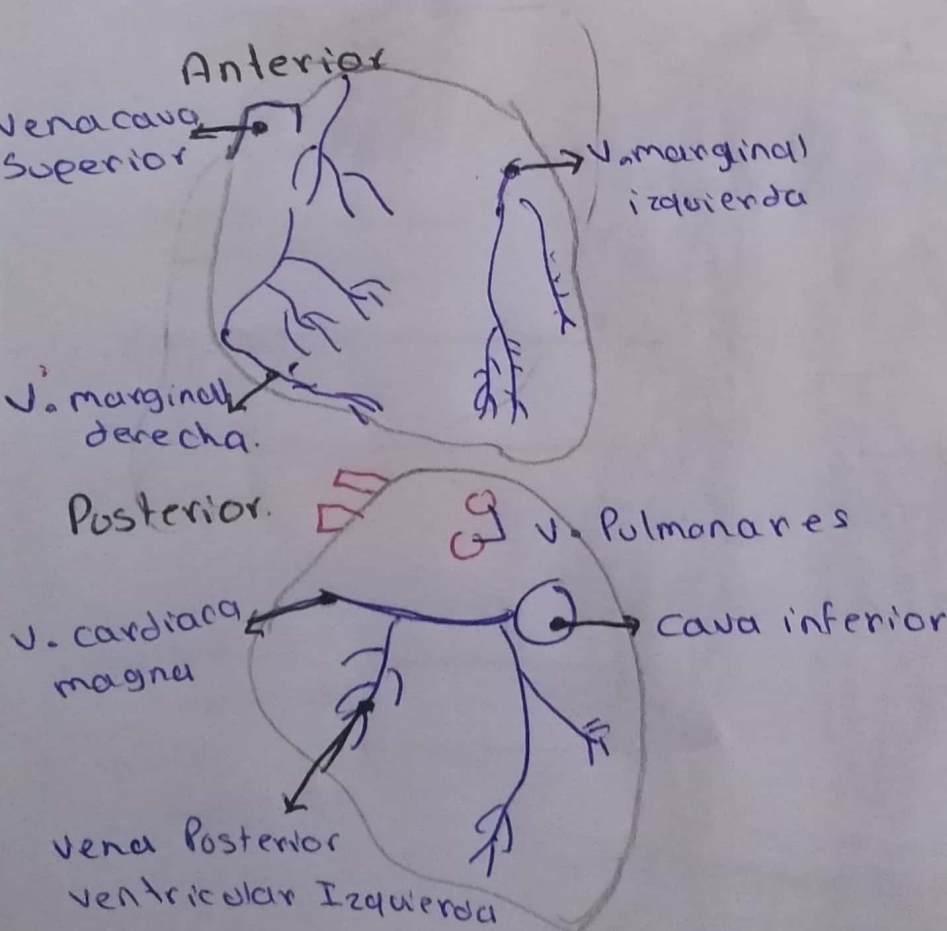 Anterior
vena cava
Superior
v. marginal
izquierda
v. marginal
derecha.
Posterior.
v. Pulmonares
v. cardiaca
magna
cava inferior
vena Posterior
ventricular Izquierda